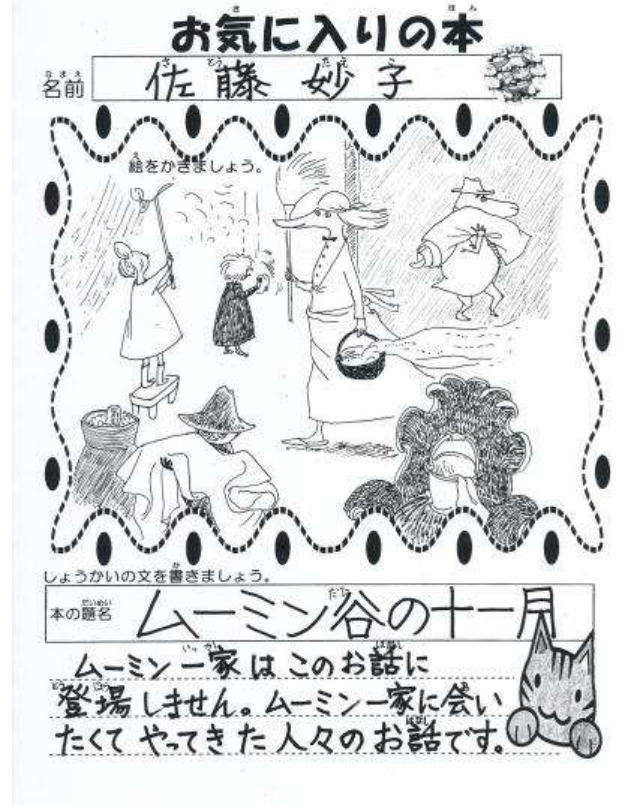 お気に入りの本
名前 佐藤 妙子
絵をかきましょう。
しょうかいの文を書きましょう。
本の題名 ムーミン谷の十一月
ムーミン一家はこのお話に
登場しません。ムーミン一家に会い
たくてやってきた人々のお話です。